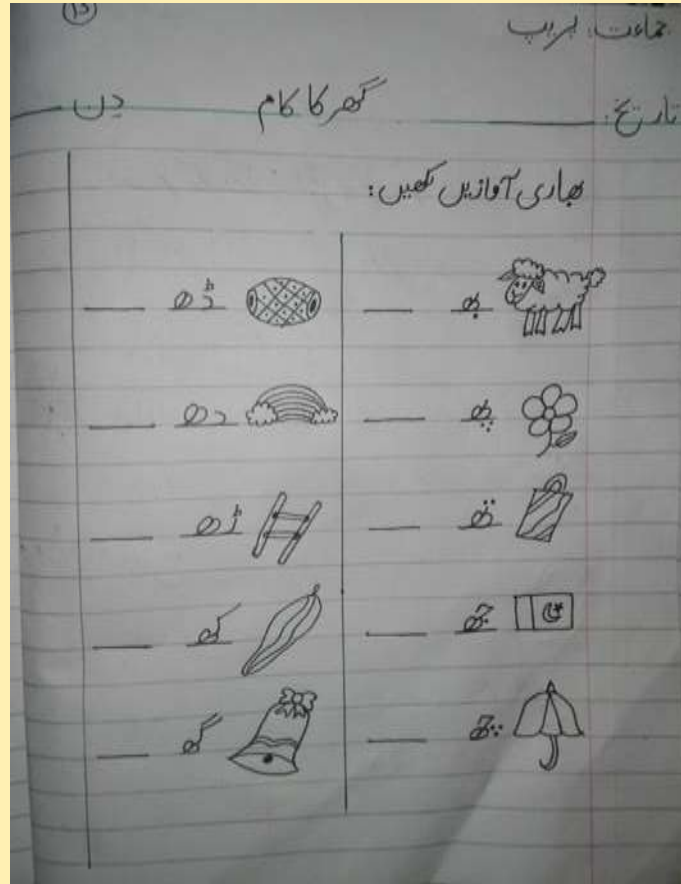 (13)
جماعت: پریپ
تاریخ: ______ گھر کا کام دن ____
بھاری آوازیں لکھیں:
بھ ____ ڈھ ____
پھ ____ دھ ____
تھ ____ ڑھ ____
جھ ____ کھ ____
چھ ____ گھ ____